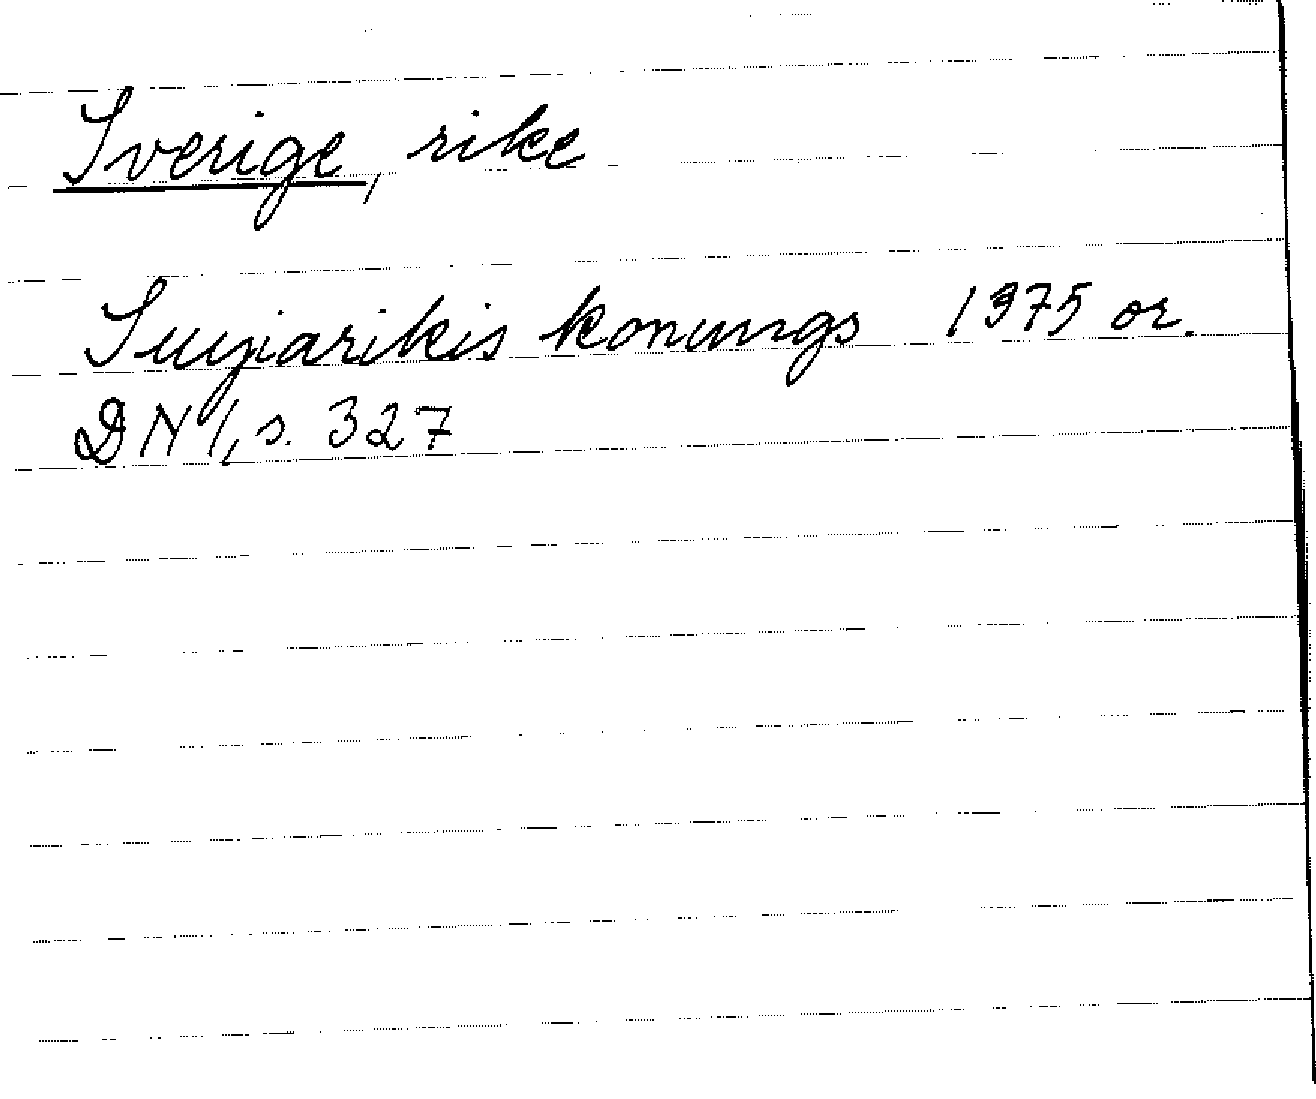 Sverige, rike
Suiyiarikis konungs 1375 or.
DN I, s. 327